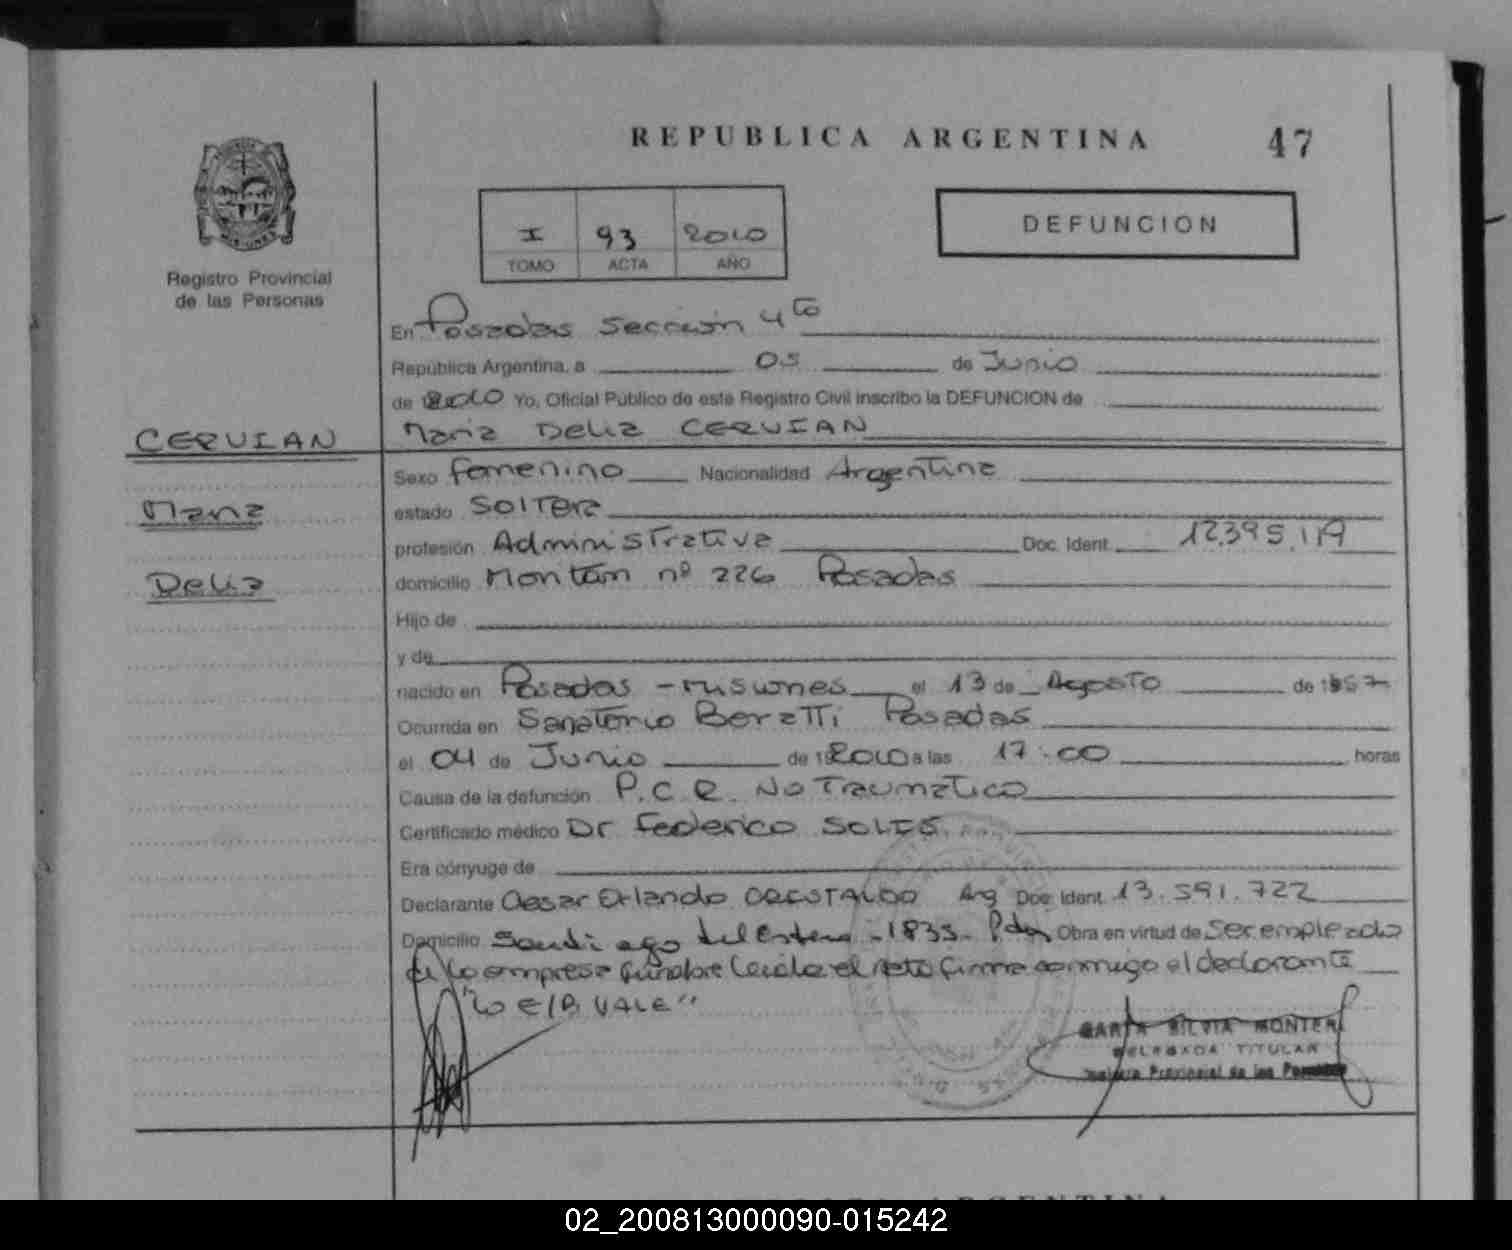 REPUBLICA ARGENTINA 47
I 93 2010
TOMO ACTA AÑO
DEFUNCION
Registro Provincial
de las Personas
En Posadas Sección 4to
República Argentina, a 05 de Junio
de 2010 Yo, Oficial Público de este Registro Civil inscribo la DEFUNCION de
CERVIAN
Maria Delia CERVIAN
Sexo femenino Nacionalidad Argentina
Maria
estado Soltera
profesión Administrativa Doc. Ident. 12.395.
Delia
domicilio nº 226 Posadas
Hijo de
y de
nacido en Posadas - Misiones el 13 de Agosto de 1957
Ocurrida en Sanatorio Boratti Posadas
el 04 de Junio de 2010 a las 17:00 horas
Causa de la defunción P.C.R. No Traumatico
Certificado médico Dr. Federico SOLIS
Era cónyuge de
Declarante Cesar Orlando Arg Doc. Ident. 13.591.722
Domicilio Santiago del Estero - 1835 - Pdas Obra en virtud de Ser empleado
de la empresa funebre Leida el acta firma conmigo el declarante
"Lo E/B VALE"
SILVIA
DELEGADA TITULAR
Provincial de las Personas
02_200813000090-015242